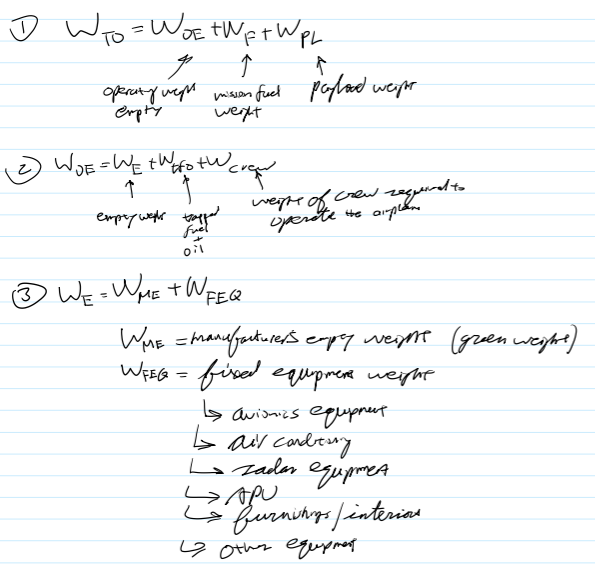 ① W_TO = W_OE + W_F + W_PL
operating weight empty
mission fuel weight
payload weight
② W_OE = W_E + W_tfo + W_crew
empty weight
trapped fuel + oil
weight of crew required to operate the airplane
③ W_E = W_ME + W_FEQ
W_ME = manufacturers empty weight (green weight)
W_FEQ = fixed equipment weight
↳ avionics equipment
↳ air conditioning
↳ radar equipment
↳ APU
↳ furnishings/interior
↳ other equipment